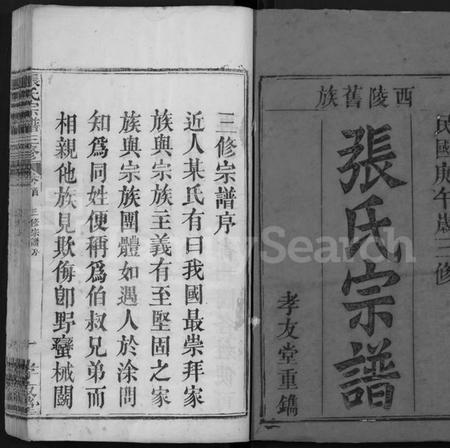 民國庚午歲三修
西陵舊族
張氏宗譜
孝友堂重鐫
三修宗譜序
近人某氏有曰我國最崇拜家
族與宗族主義有至堅固之家
族與宗族團體如遇人於涂問
知爲同姓便稱爲伯叔兄弟而
相親他族見欺侮卽野蠻械鬬
張氏宗譜三修
卷首
三修宗譜序
MySearch